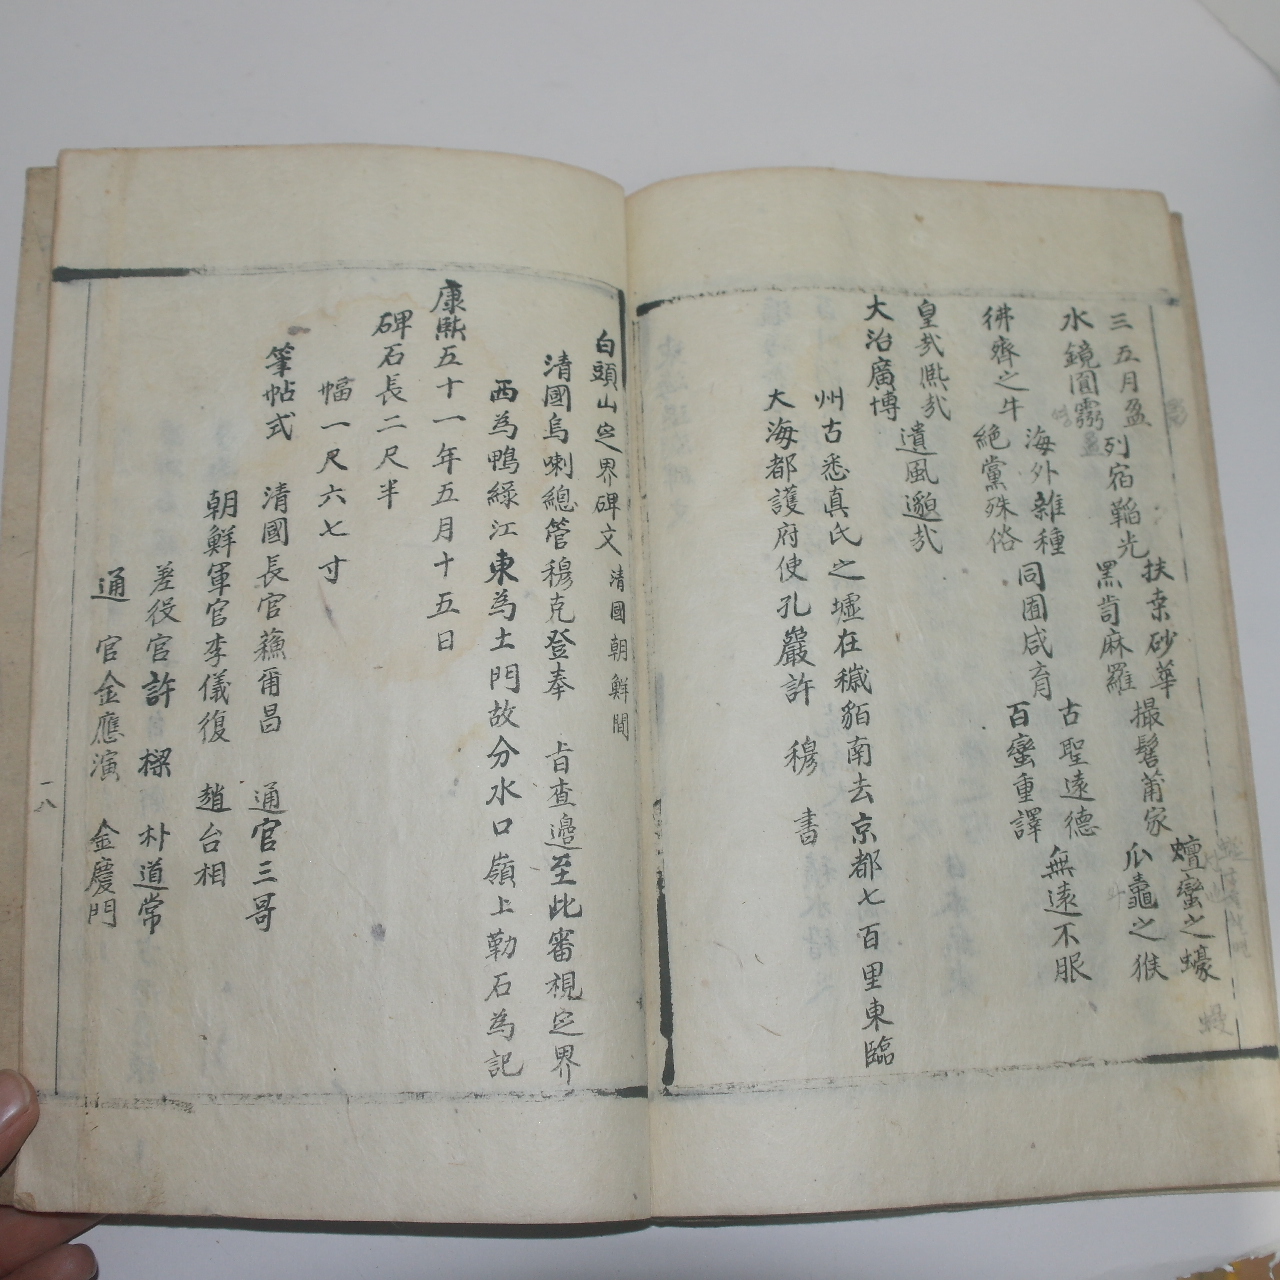 扶桒砂華 撮髻莆家 蟺蠻之蠔
三五月盈 列宿韜光 黑齒麻羅 瓜蠿之猴
水鏡圓霛 海外雜種 古聖遠德 無遠不服
彿齊之牛 絕黨殊俗 同囿咸育 百蠻重譯
皇㢤熈㢤 遺風邈㢤
大治廣博
州古悉真氏之墟在穢貊南去京都七百里東臨
大海都護府使孔巖許 穆 書
白頭山㝎界碑文 清國朝鮮間
清國烏喇總管穆克登奉 旨查邊至此審視㝎界
西為鴨綠江東為土門故分水口嶺上勒石為記
康熙五十一年五月十五日
碑石長二尺半
幅一尺六七寸
筆帖式 清國長官蘓甬昌 通官三哥
朝鮮軍官李儀復 趙台相
差役官許樑 朴道常
通官金應演 金慶門
一八